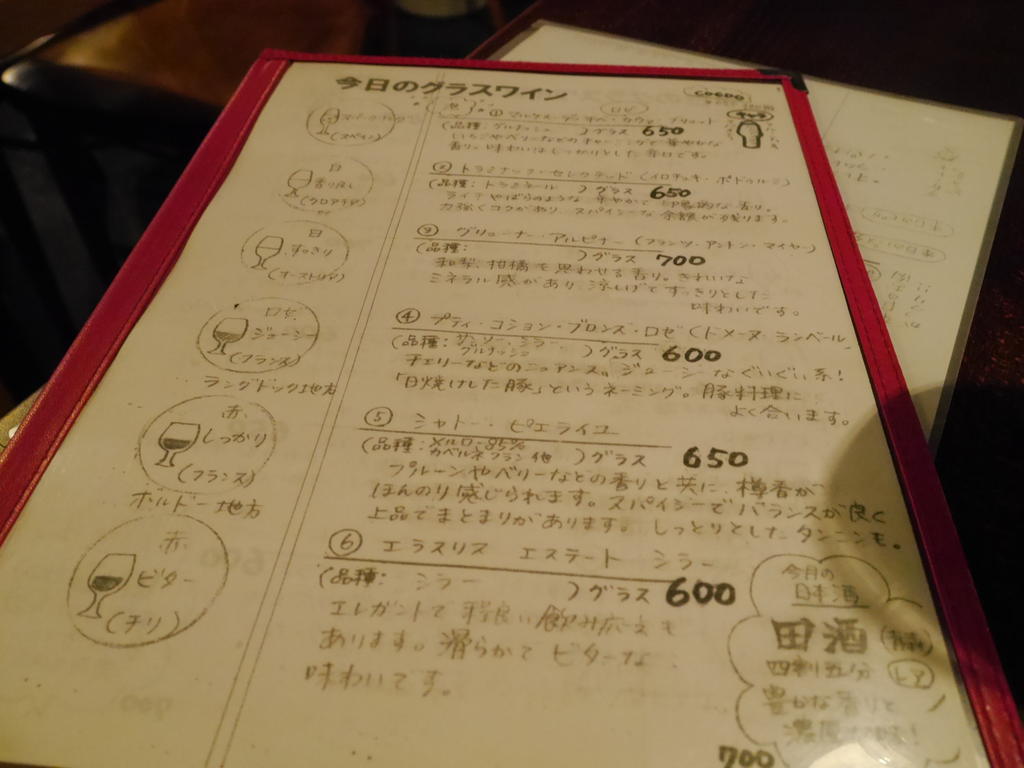 今日のグラスワイン
(スペイン)
ロゼ
(品種: グルナッシュ )グラス 650
いちごやベリーなどのチャーミングで華やかな
香り。味わいはしっかりとした辛口です。
白
香り良し
(クロアチア)
② トラミナッツ・セレクテッド
(品種: トラミネール )グラス 650
ライチやばらのような 華やかで印象的な香り。
力強くコクがあり、スパイシーな余韻が残ります。
白
すっきり
(オーストリア)
③ グリューナー・アルピナー (フランツ・アントン・マイヤー)
(品種: )グラス 700
和梨、柑橘を思わせる香り。きれいな
ミネラル感があり、涼しげですっきりとした
味わいです。
ロゼ
ジューシー
(フランス)
ラングドック地方
④ プティ・コション・ブロンズ・ロゼ (ドメーヌ・ランベール
(品種: サンソー・シラー グルナッシュ )グラス 600
チェリーなどのニュアンス。ジューシーなぐいぐい系!
「日焼けした豚」というネーミング。豚料理に
よく合います。
赤
しっかり
(フランス)
ボルドー地方
⑤ シャトー・ピエライユ
(品種: メルロー85% カベルネフラン他 )グラス 650
プルーンやベリーなどの香りと共に、樽香が
ほんのり感じられます。スパイシーでバランスが良く
上品でまとまりがあります。しっとりとしたタンニンも。
赤
ビター
(チリ)
⑥ エラスリス エステート シラー
(品種: シラー )グラス 600
エレガントで 程良い飲み応えも
あります。滑らかで ビターな
味わいです。
今月の
日本酒
田酒 (青森)
四割五分
豊かな香りと
700